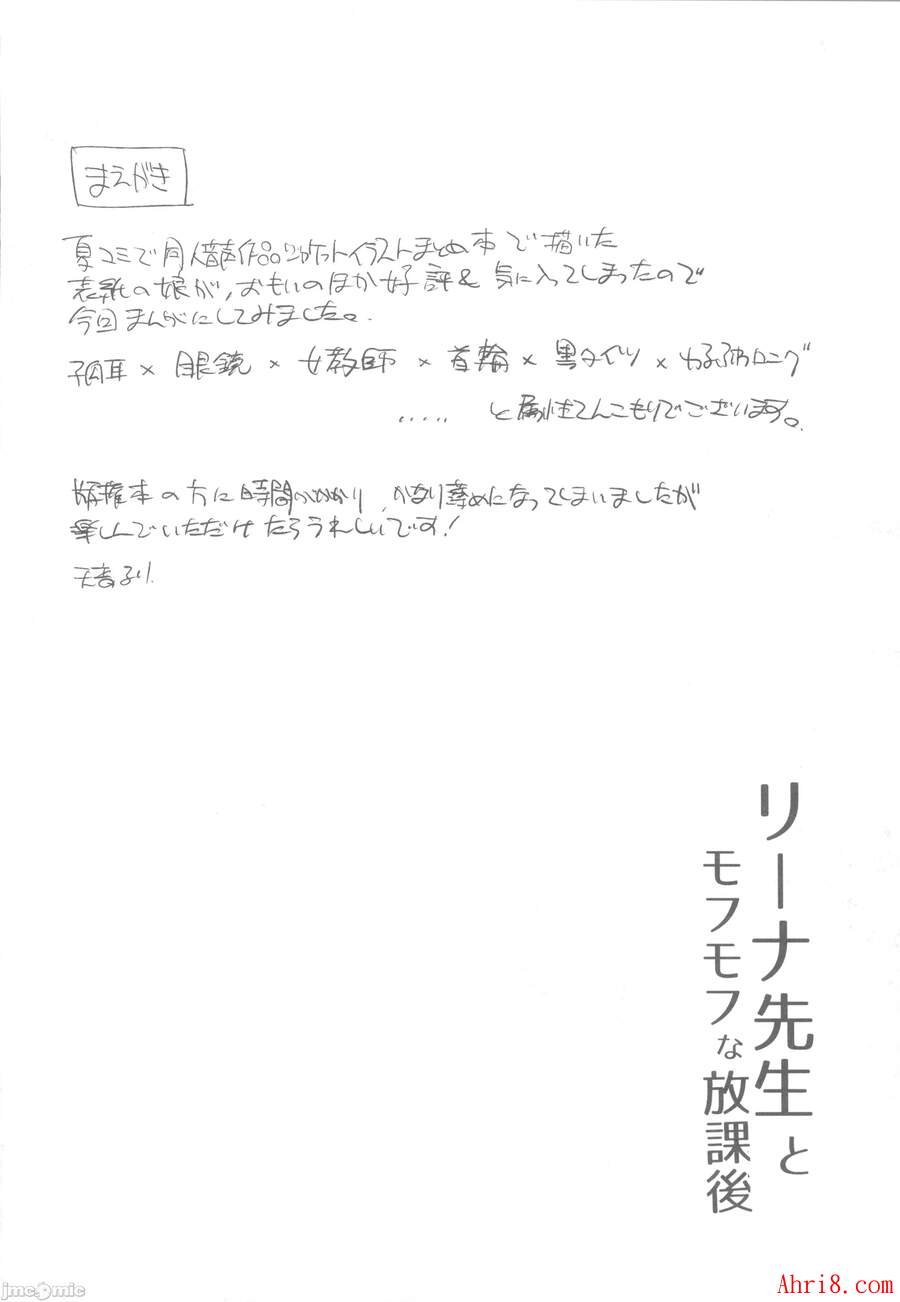 まえがき
夏コミで同人音声作品ジャケットイラストまとめ本で描いた
表紙の娘が、おもいのほか好評&気に入ってしまったので
今回まんがにしてみました。
狐耳×眼鏡×女教師×首輪×黒タイツ×ゆるふわロング
.....と属性てんこもりでございます。
版権本の方に時間がかかり、かなり薄めになってしまいましたが
楽しんでいただけたらうれしいです!
リーナ先生と
モフモフな放課後
jmcomic
Ahri8.com